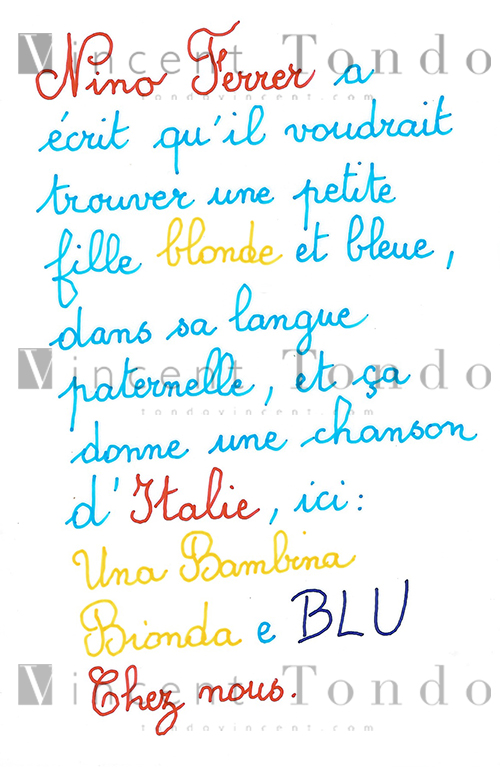 Vincent Tondo
tondovincent.com
Nino Ferrer a
écrit qu'il voudrait
trouver une petite
fille blonde et bleue,
dans sa langue
Vincent Tondo
paternelle, et ça
tondovincent.com
donne une chanson
d'Italie, ici :
Una Bambina
Bionda e BLU
Vincent Tondo
Chez nous.
tondovincent.com